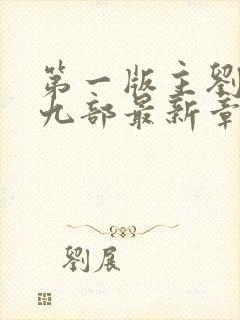 第一版主劉
九部最新章
劉展